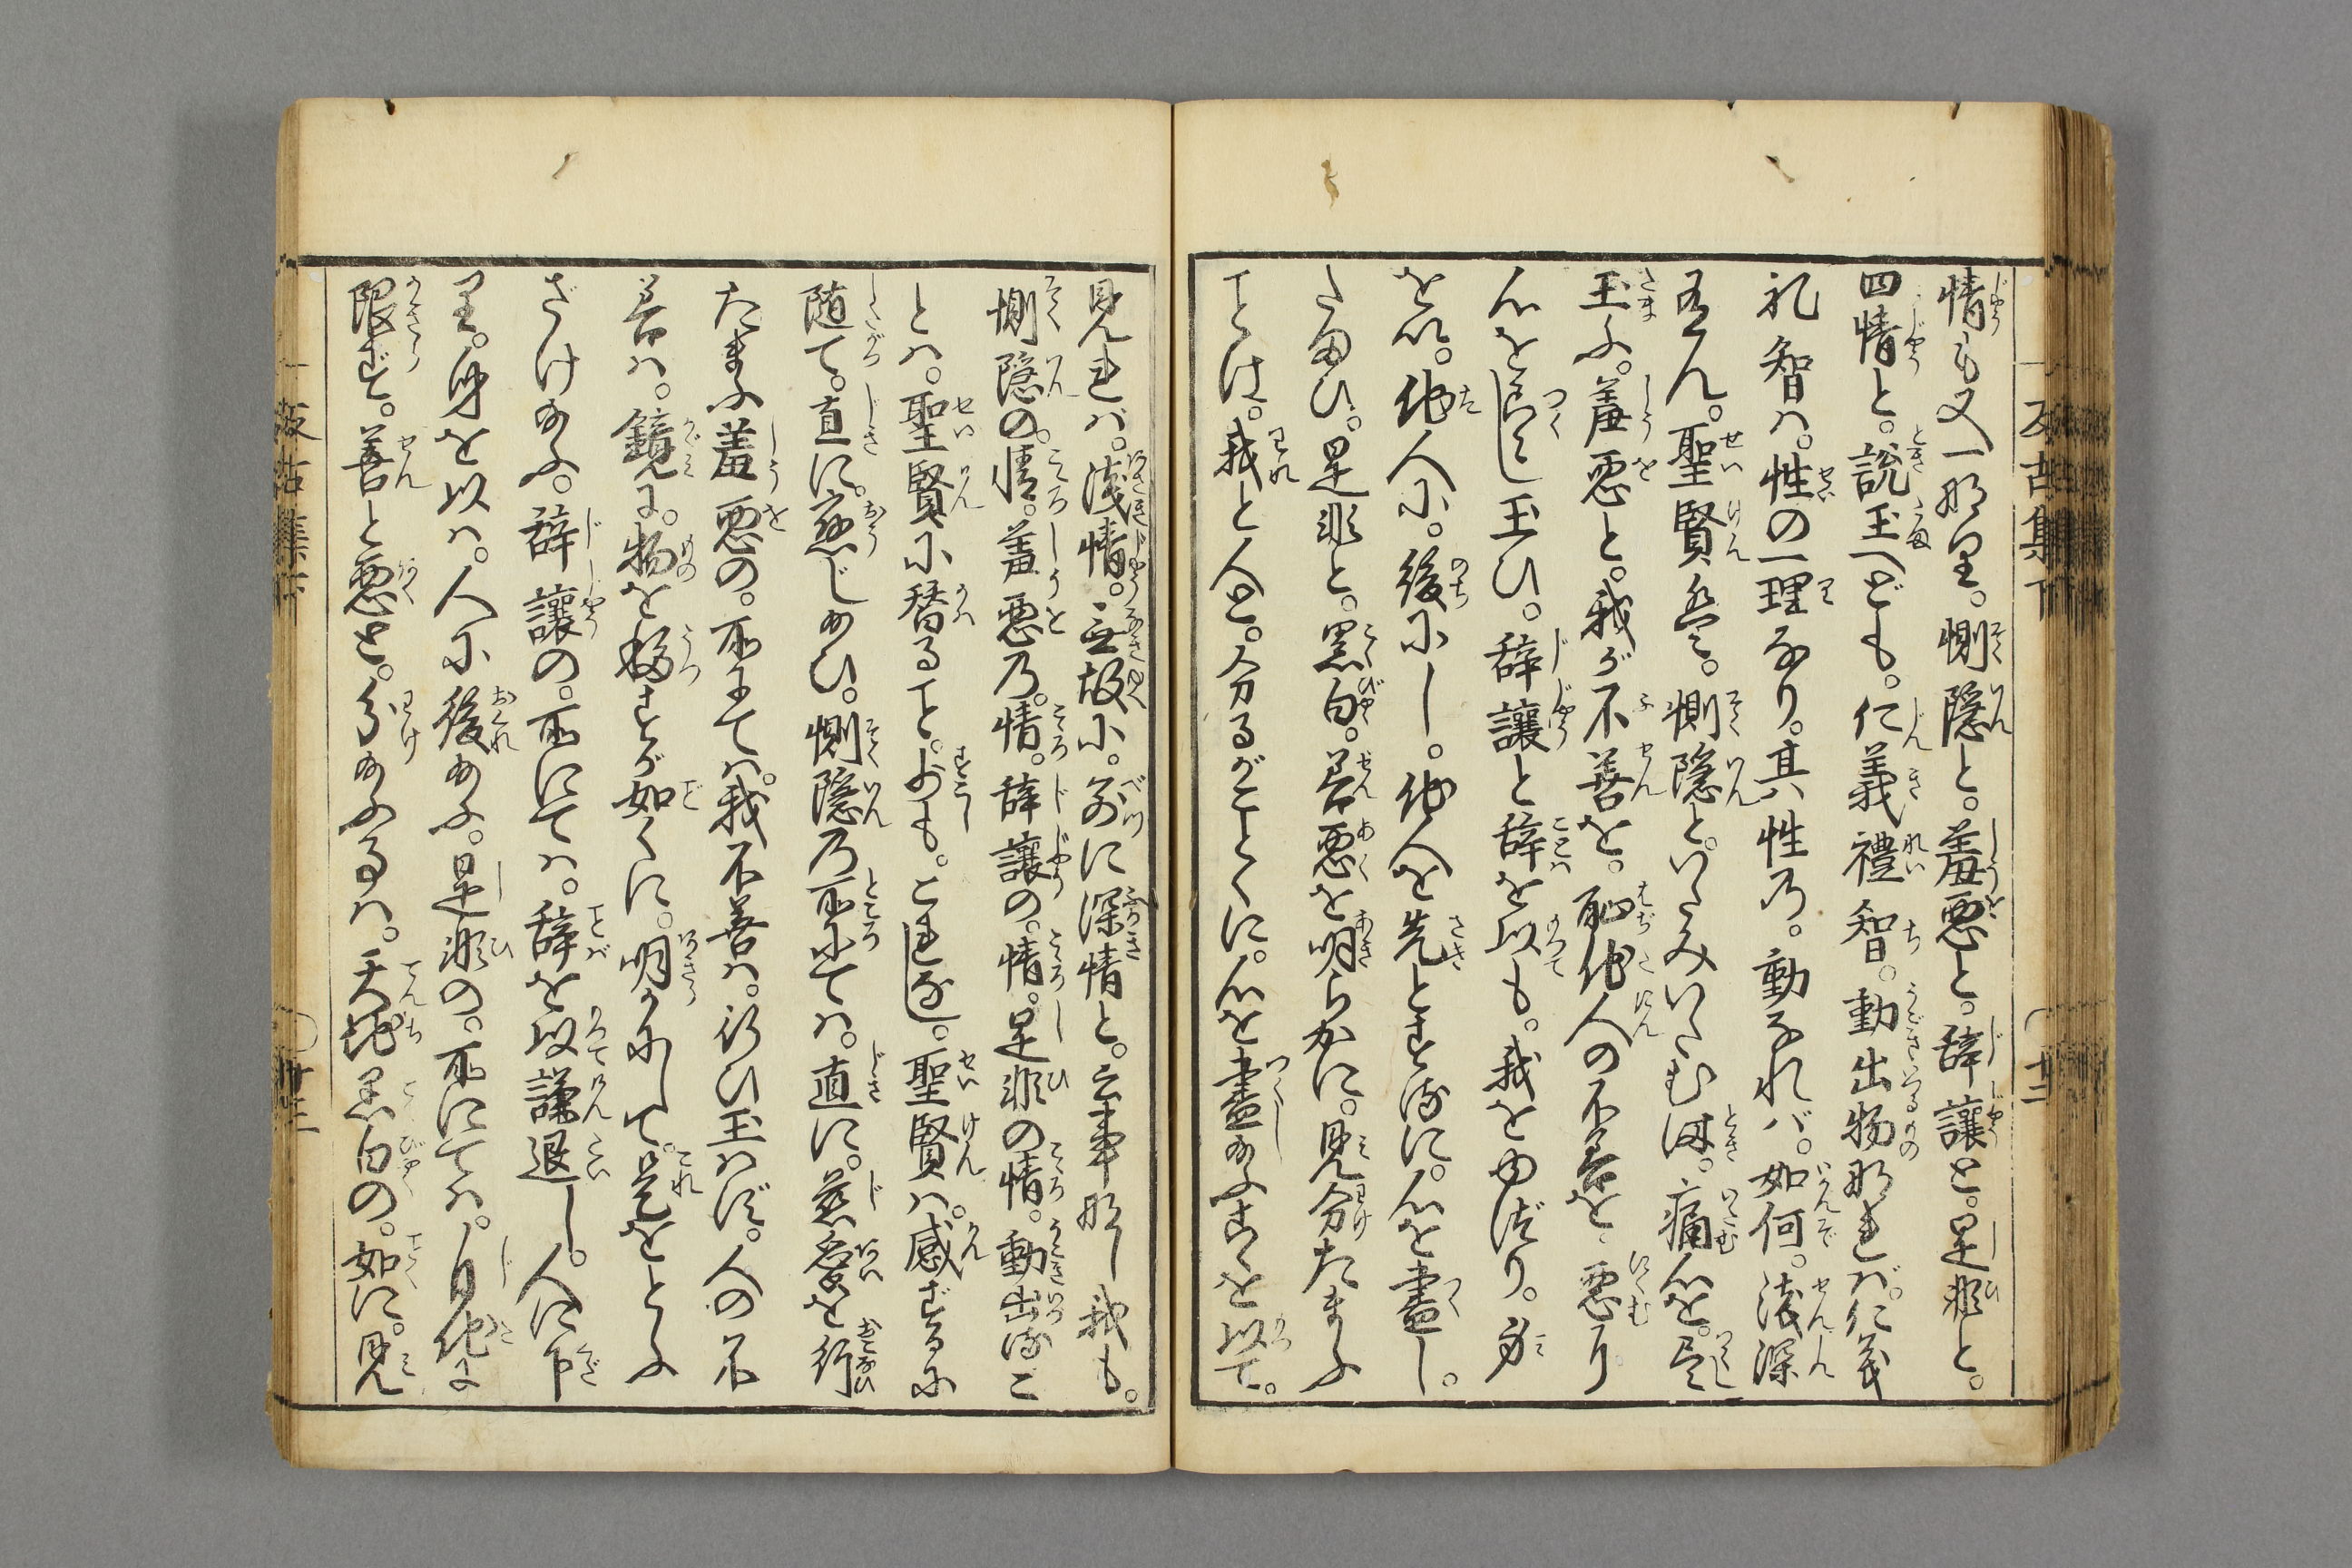 反古集下
十二
情も又一那里。惻隠と。羞悪と。辞讓と。是非と。
四情と。説玉へども。仁義禮智。動出物那れバ。仁義
礼智ハ。性の一理なり。其性乃。動なれバ。如何。浅深
有ん。聖賢是。惻隠と。いたみいたむ時。痛心を。尽
玉ふ。羞悪と。我が不善を。恥他人の不善を。悪り
心を尽し玉ひ。辞讓と辞を以も。我をゆづり。身
を以。他人に。後にし。他人を先とする に。心を盡し。
たまひ。是非と。黒白。善悪を明らかに。見分たまふ
ことは。我と人と。分るがごとくに。心を盡玉ふ心を以て。
見れバ。浅情。無故に。別に深情と。云事那し我も。
惻隠の。情。羞悪乃。情。辞讓の。情。是非の情。動出るこ
とハ。聖賢に替ること。少も。これなし。聖賢ハ。感ずるに
随て。直に。應じ玉ひ。惻隠乃所にてハ。直に。慈愛を行
たまふ羞悪の。所にてハ。我不善ハ。行ひ玉はず。人の不
善ハ。鏡に。物を移すが如くに。明らかにして。是をとふ
ざけ玉ふ。辞讓の。所にてハ。辞を以謙退し。人に下
里。身を以ハ。人に後玉ふ。是非の。所にてハ。自他に
限ず。善と悪と。分玉ふ事ハ。天地黒白の。如に。見
反古集下
十三